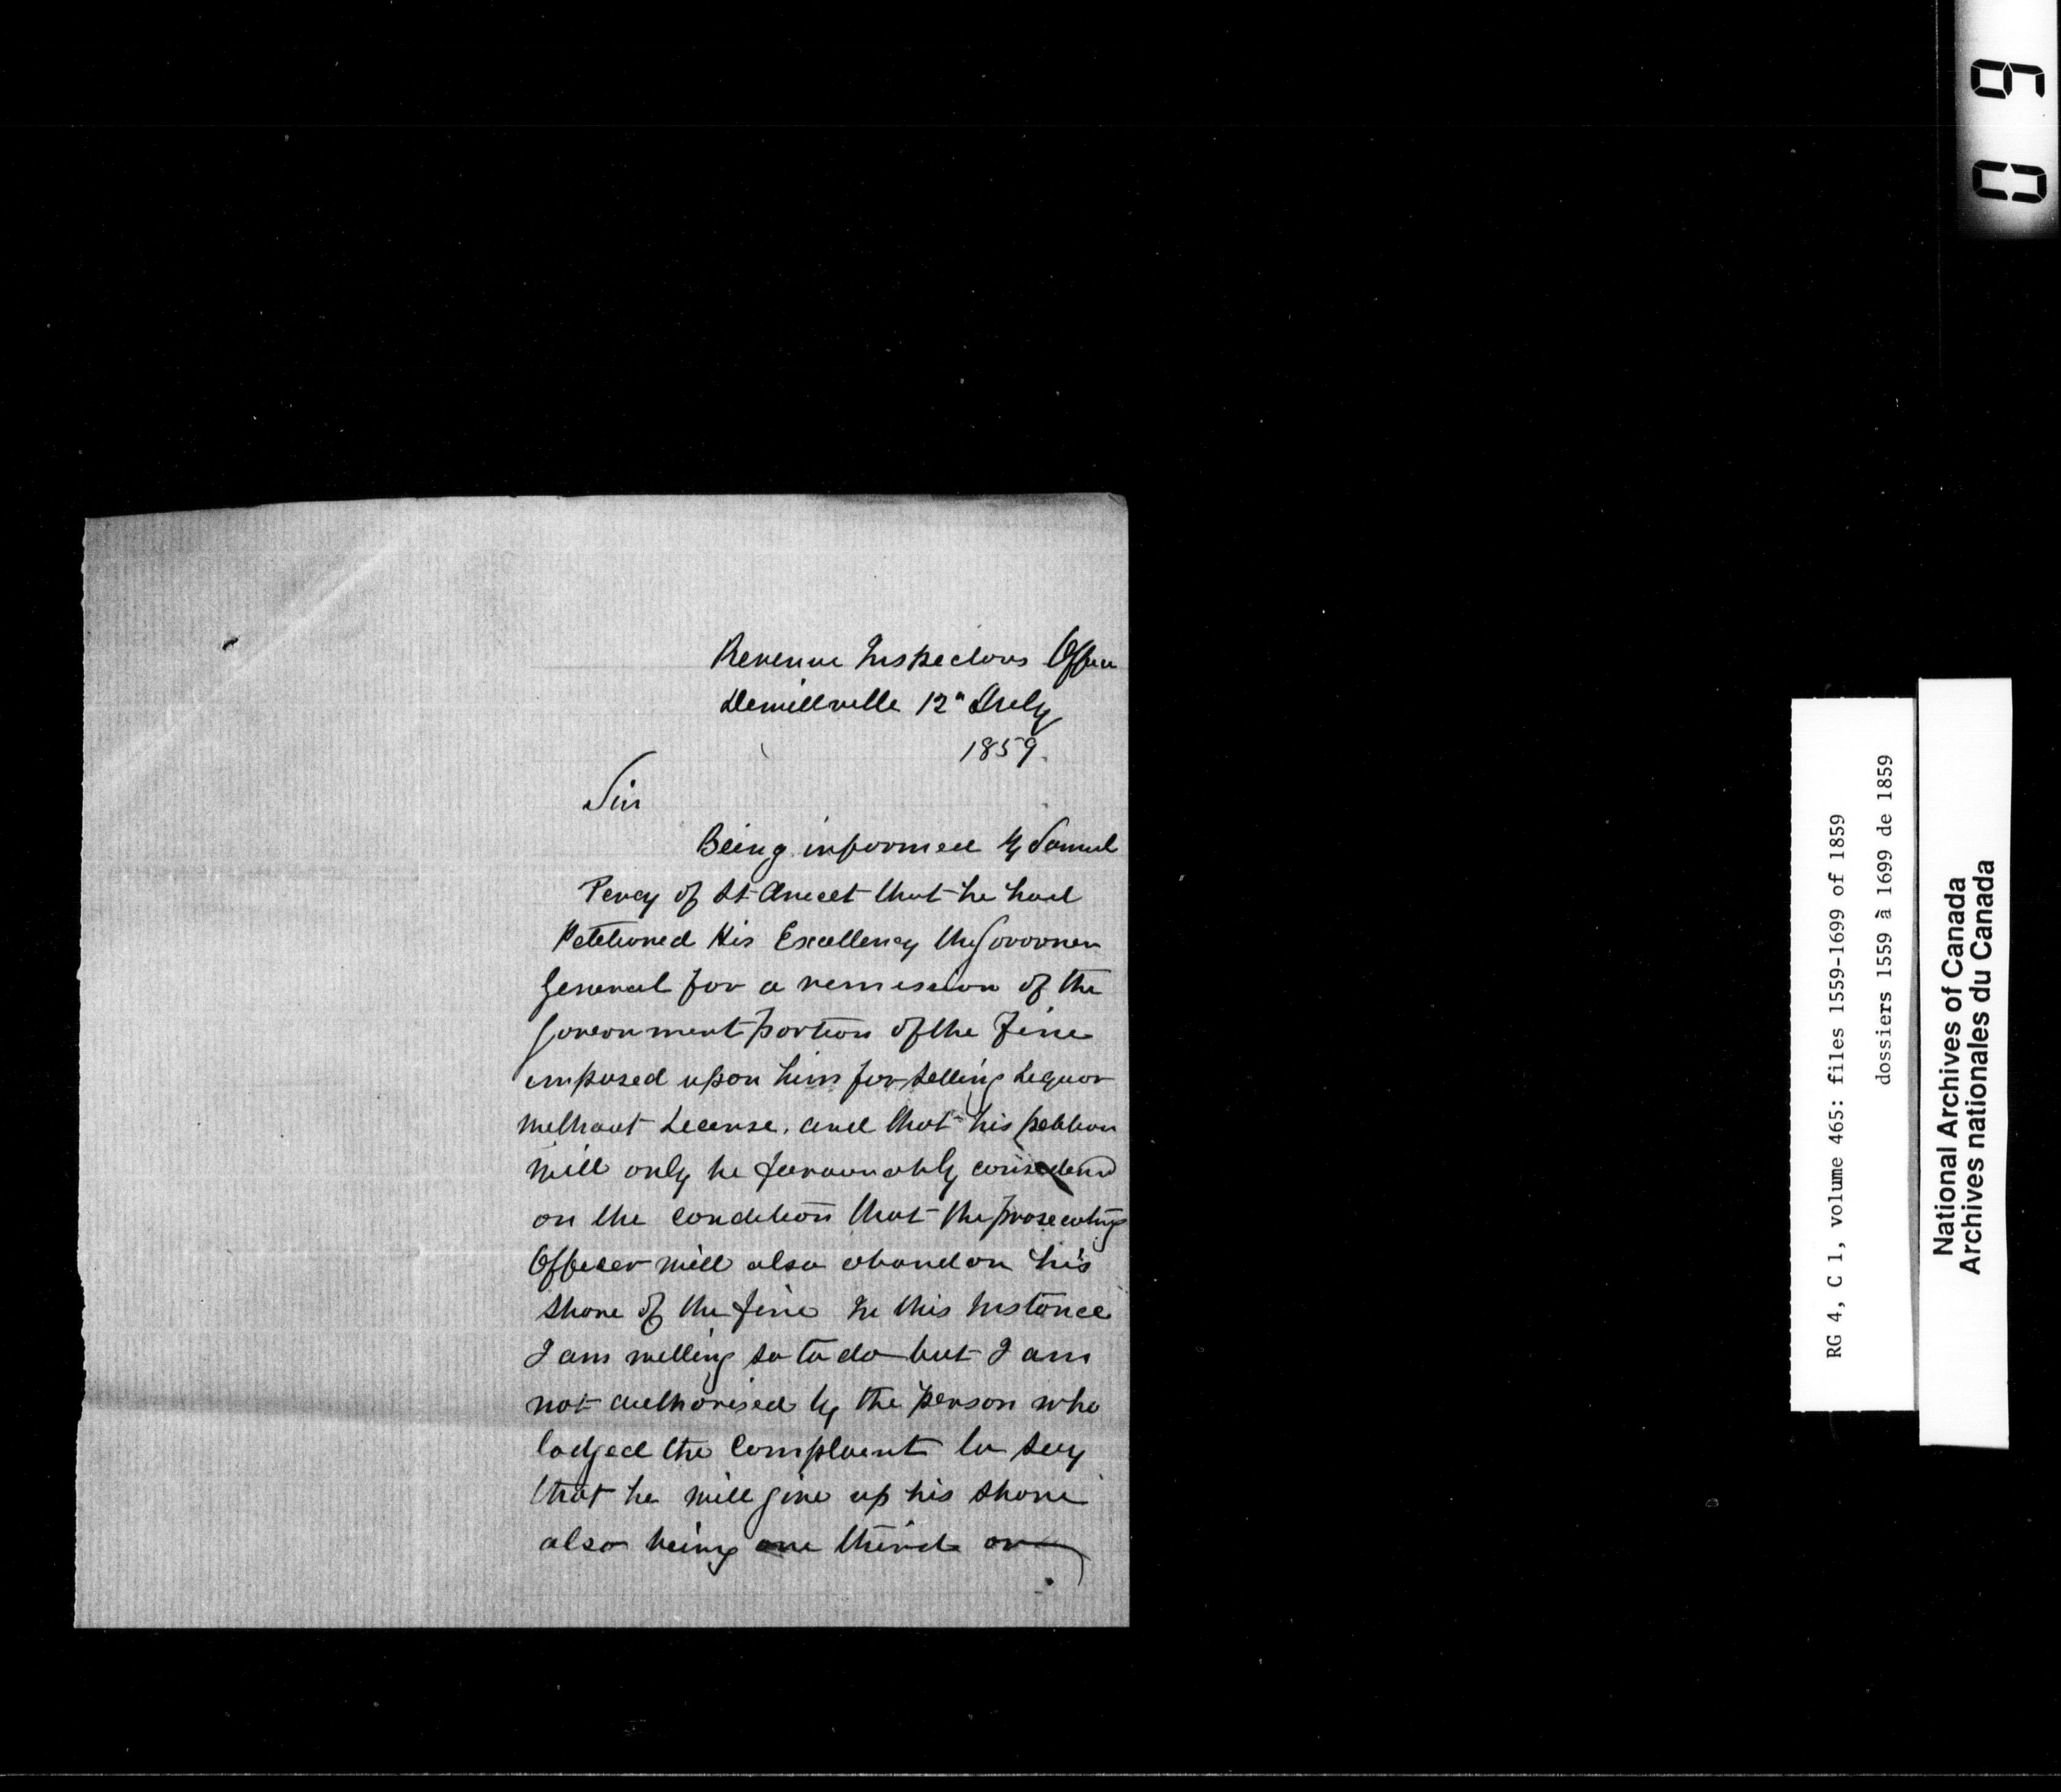 Revenue Inspectors Office
Dewittville 12" July
1859.
Sir
Being informed by Samuel
Percy of St Anicet that he had
Petitioned His Excellency the Govorner
General for a remission of the
Government portion of the Fine
imposed upon him for selling Liquor
without License. and that his petition
will only be favourably considered
on the condition that the prosecuting
Officer will also abandon his
share of the fine In this Instance
I am willing so to do but I am
not authorised by the person who
lodged the Complaint to say
that he will give up his share
also being one third or
09
RG 4, C 1, volume 465: files 1559-1699 of 1859
dossiers 1559 à 1699 de 1859
National Archives of Canada
Archives nationales du Canada